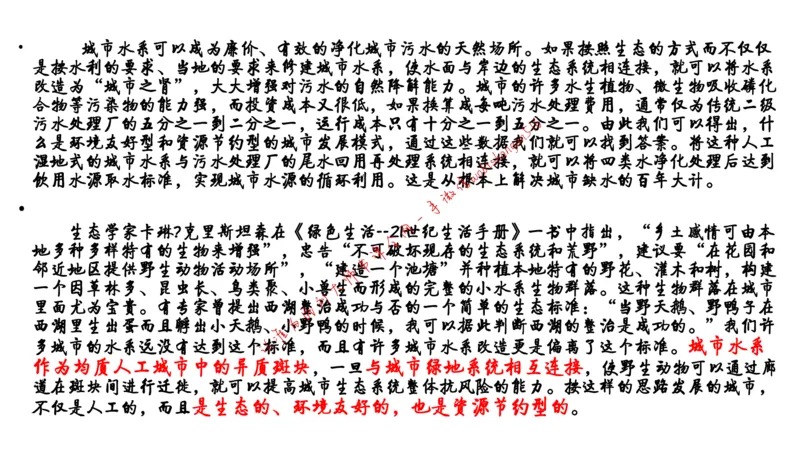 • 城市水系可以成为廉价、有效的净化城市污水的天然场所。如果按照生态的方式而不仅仅
是按水利的要求、当地的要求来修建城市水系,使水面与岸边的生态系统相连接,就可以将水系
改造为“城市之肾”,大大增强对污水的自然降解能力。城市的许多水生植物、微生物吸收磷化
合物等污染物的能力强,而投资成本又很低,如果换算成每吨污水处理费用,通常仅为传统二级
污水处理厂的五分之一到二分之一,运行成本只有十分之一到五分之一。由此我们可以得出,什
么是环境友好型和资源节约型的城市发展模式,通过这些数据我们就可以找到答案。将这种人工
湿地式的城市水系与污水处理厂的尾水回用再处理系统相连接,就可以将四类水净化处理后达到
饮用水源取水标准,实现城市水源的循环利用。这是从根本上解决城市缺水的百年大计。
•
生态学家卡琳?克里斯坦森在《绿色生活--21世纪生活手册》一书中指出,“乡土感情可由本
地多种多样特有的生物来增强”,忠告“不可破坏现存的生态系统和荒野”,建议要“在花园和
邻近地区提供野生动物活动场所”,“建造一个池塘”并种植本地特有的野花、灌木和树,构建
一个因草林多、昆虫长、鸟类聚、小兽生而形成的完整的小水系生物群落。这种生物群落在城市
里面尤为宝贵。有专家曾提出西湖整治成功与否的一个简单的生态标准:“当野天鹅、野鸭子在
西湖里生出蛋而且孵出小天鹅、小野鸭的时候,我可以据此判断西湖的整治是成功的。”我们许
多城市的水系远没有达到这个标准,而且有许多城市水系改造更是偏离了这个标准。城市水系
作为均质人工城市中的异质斑块,一旦与城市绿地系统相互连接,使野生动物可以通过廊
道在斑块间进行迁徙,就可以提高城市生态系统整体抗风险的能力。按这样的思路发展的城市,
不仅是人工的,而且是生态的、环境友好的,也是资源节约型的。